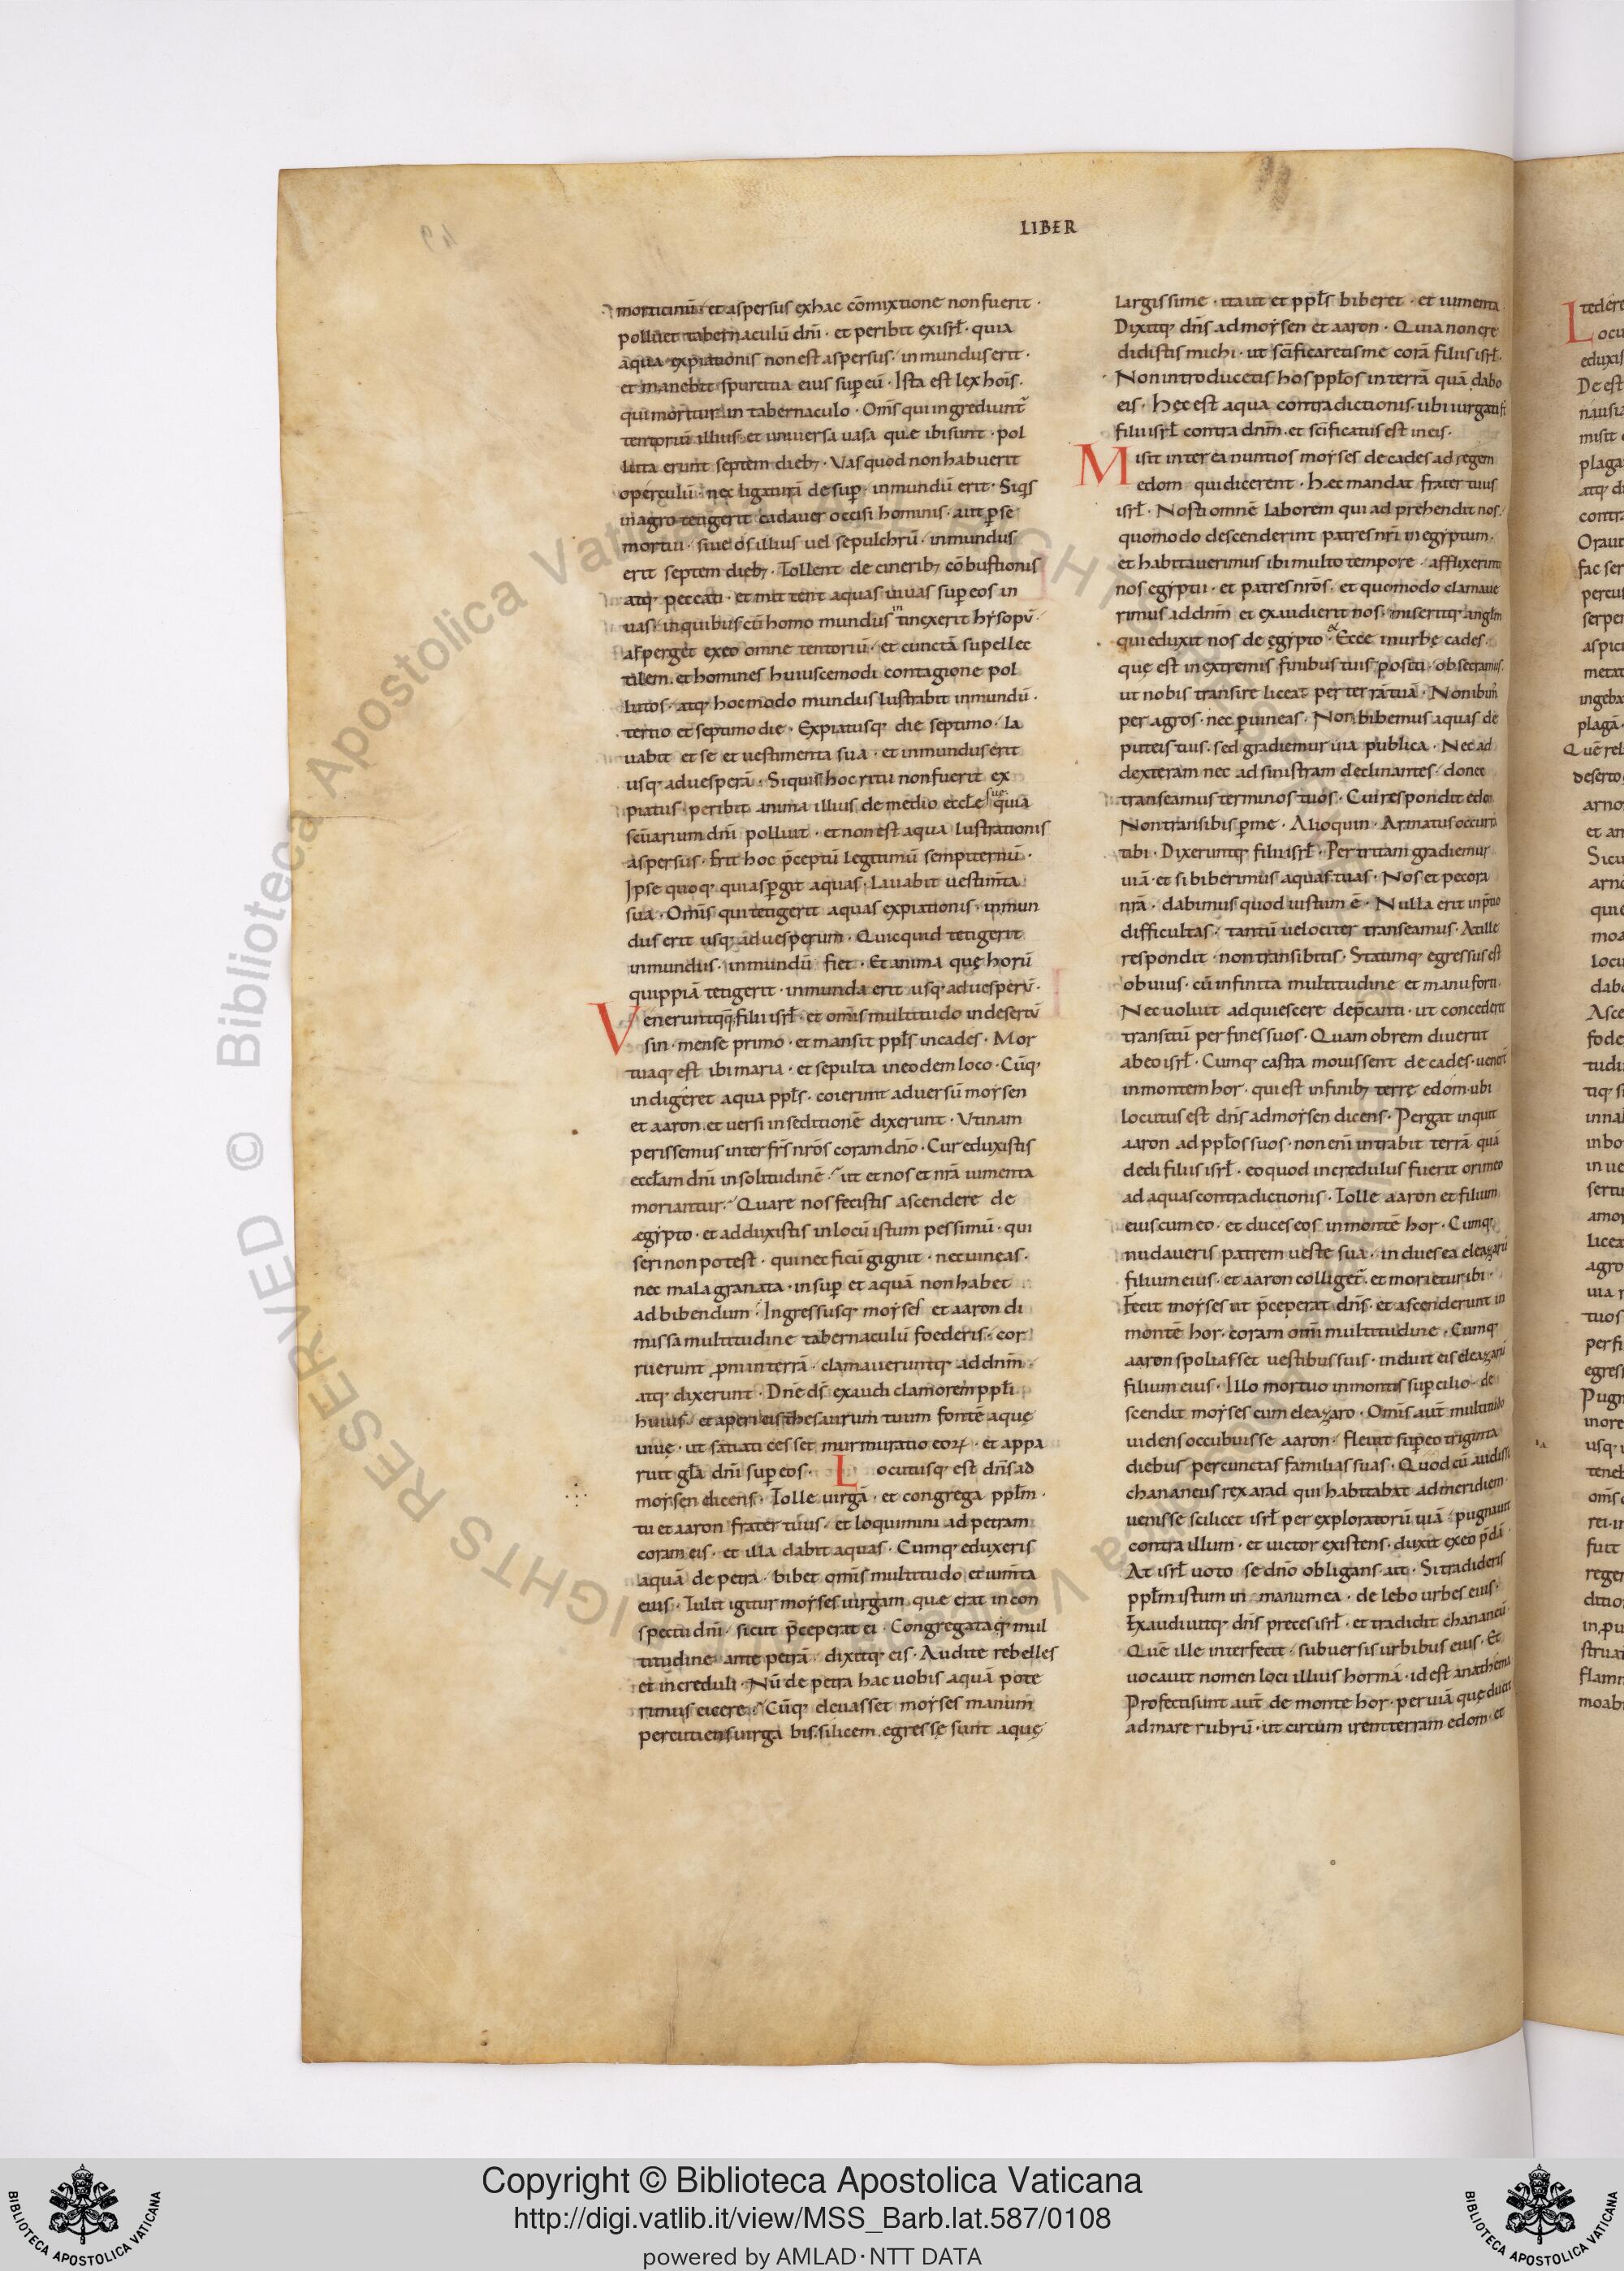 LIBER
morticiniũ et aspersus ex hac cõmixtione non fuerit ·
polluet tabernaculũ dñi · et peribit ex isrł · quia
aqua expiationis non est aspersus · inmundus erit ·
et manebit spurcitia eius sup eũ · Ista est lex hoĩs ·
qui moritur in tabernaculo · Om̃s qui ingrediunt̃
tentoriũ illius et universa vasa que ibi sunt · pol
luta erunt septem dieb; · Vas quod non habuerit
operculũ · nec ligaturã desup · inmundũ erit · Siqs
in agro tetigerit cadaver occisi hominis · aut p se
mortui · sive os illius vel sepulchrũ · inmundus
erit septem dieb; · Tollent de cinerib; cõbustionis
atq; peccati · et mittent aquas vivas sup eos in
vas · in quibus cũ homo mundus tinxerit hysopũ ·
asperget ex eo omne tentoriũ · et cunctã supellec
tilem · et homines huiuscemodi contagione pol
lutos · atq; hoc modo mundus lustrabit inmundũ ·
tertio et septimo die · Expiatusq; die septimo · la
vabit et se et vestimenta sua · et inmundus erit
usq; ad vesperã · Siquis hoc ritu non fuerit ex
piatus · peribit anima illius de medio eccłe quia
scũarium dñi polluit · et non est aqua lustrationis
aspersus · Erit hoc p̃ceptũ legitimũ sempiternũ ·
Ipse quoq; qui aspgit aquas · Lavabit vestim̃ta
sua · Om̃s qui tetigerit aquas expiationis · inmun
dus erit usq; ad vesperum · Quicquid tetigerit
inmundus · inmundũ fiet · Et anima quę horũ
quippiã tetigerit · inmunda erit usq; ad vesperũ ·
Veneruntq; filii isrł · et om̃is multitudo in desertũ
sin · mense primo · et mansit ppłs in cades · Mor
tuaq; est ibi maria · et sepulta in eodem loco · Cũq;
indigeret aqua ppłs · coierunt adversũ moysen
et aaron · et versi in seditionẽ dixerunt · Utinam
perissemus inter frs̃ nrõs coram dño · Cur eduxistis
eccłam dñi in solitudinẽ · ut et nos et nrã iumenta
moriantur · Quare nos fecistis ascendere de
egypto · et adduxistis in locũ istum pessimũ · qui
seri non potest · qui nec ficũ gignit · nec vineas ·
nec mala granata · insup et aquã non habet
ad bibendum · Ingressusq; moyses et aaron di
missa multitudine tabernaculũ foederis · cor
ruerunt pni in terrã · clamaveruntq; ad dñm ·
atq; dixerunt · Dñe ds̃ exaudi clamorem ppłi
huius · et aperi eis thesaurum tuum fontẽ aquę
vivę · ut satiati cesset murmuratio eoꝝ · et appa
ruit głã dñi sup eos · Locutusq; est dñs ad
moysen dicens · Tolle virgã · et congrega ppłm ·
tu et aaron frater tuus · et loquimini ad petram
coram eis · et illa dabit aquas · Cumq; eduxeris
aquã de petra · bibet om̃is multitudo et ium̃ta
eius · Tulit igitur moyses virgam que erat in con
spectu dñi · sicut p̃ceperat ei · Congregataq; mul
titudine ante petrã · dixitq; eis · Audite rebelles
et increduli · Nũ de petra hac vobis aquã pote
rimus eicere · Cũq; elevasset moyses manum
percutiens virga bis silicem · egresse sunt aquę
largissime · ita ut et ppłs biberet · et iumenta
Dixitq; dñs ad moysen et aaron · Quia non cre
didistis michi · ut scĩficaretis me corã filiis isrł ·
Non introducetis hos ppłos in terrã quã dabo
eis · Hęc est aqua contradictionis · ubi iurgati st̃
filii isrł contra dnm̃ · et scĩficatus est in eis ·
Misit interea nuntios moyses de cades ad regem
edom · qui dicerent · Hęc mandat frater tuus
isrł · Nosti omnẽ laborem qui adprehendit nos ·
quomodo descenderint patres nr̃i in egyptum ·
et habitaverimus ibi multo tempore · afflixerintq;
nos egyptii · et patres nrõs · et quomodo clamave
rimus ad dnm̃ et exaudierit nos · miseritq; anglm̃
qui eduxit nos de egypto · Ecce in urbe cades ·
quę est in extremis finibus tuis positi · obsecramus
ut nobis transire liceat per terrã tuã · Non ibim̃
per agros · nec p vineas · Non bibemus aquas de
puteis tuis · sed gradiemur via publica · Nec ad
dexteram nec ad sinistram declinantes · donec
transeamus terminos tuos · Cui respondit edõ
Non transibis p me · Alioquin · Armatus occurrã
tibi · Dixeruntq; filii isrł · Per tritam gradiemur
viã · et si biberimus aquas tuas · Nos et pecora
nrã · dabimus quod iustum ẽ · Nulla erit in p̃tio
difficultas · tantũ velociter transeamus · At ille
respondit · non transibitis · Statimq; egressus est
obvius · cũ infinita multitudine et manu forti ·
Nec voluit adquiescere dep̃canti · ut concederet
transitũ per fines suos · Quam obrem divertit
ab eo isrł · Cumq; castra movissent de cades · venert̃
in montem hor · qui est in finib; terrę edom · ubi
locutus est dñs ad moysen dicens · Pergat inquit
aaron ad ppłos suos · non enĩ intrabit terrã quã
dedi filiis isrł · eo quod incredulus fuerit ori meo
ad aquas contradictionis · Tolle aaron et filium
eius cum eo · et duces eos in montẽ hor · Cumq;
nudaveris patrem veste sua · indues ea eleazarũ
filium eius · et aaron colliget̃ · et morietur ibi ·
Fecit moyses ut p̃ceperat dñs · et ascenderunt in
montẽ hor · coram om̃i multitudine · Cumq;
aaron spoliasset vestibus suis · induit eis eleazarũ
filium eius · Illo mortuo in montis sup cilio · de
scendit moyses cum eleazaro · Om̃is aut̃ multitudo
videns occubuisse aaron · flevit sup eo triginta
diebus per cunctas familias suas · Quod cũ audisset
chananeus rex arad qui habitabat ad meridiem
venisse scilicet isrł per exploratorũ viã · pugnavit
contra illum · et victor existens · duxit ex eo p̃dã ·
At isrł voto se dño obligans · ait · Si tradideris
ppłm istum in manu mea · delebo urbes eius ·
Exaudivitq; dñs preces isrł · et tradidit chananeũ ·
Quẽ ille interfecit · subversis urbibus eius · Et
vocavit nomen loci illius hormã · id est anathema
Profecti sunt aut̃ de monte hor · per viã quę ducit
ad mare rubrũ · ut circum irent terram edom · et
Copyright © Biblioteca Apostolica Vaticana
http://digi.vatlib.it/view/MSS_Barb.lat.587/0108
powered by AMLAD·NTT DATA